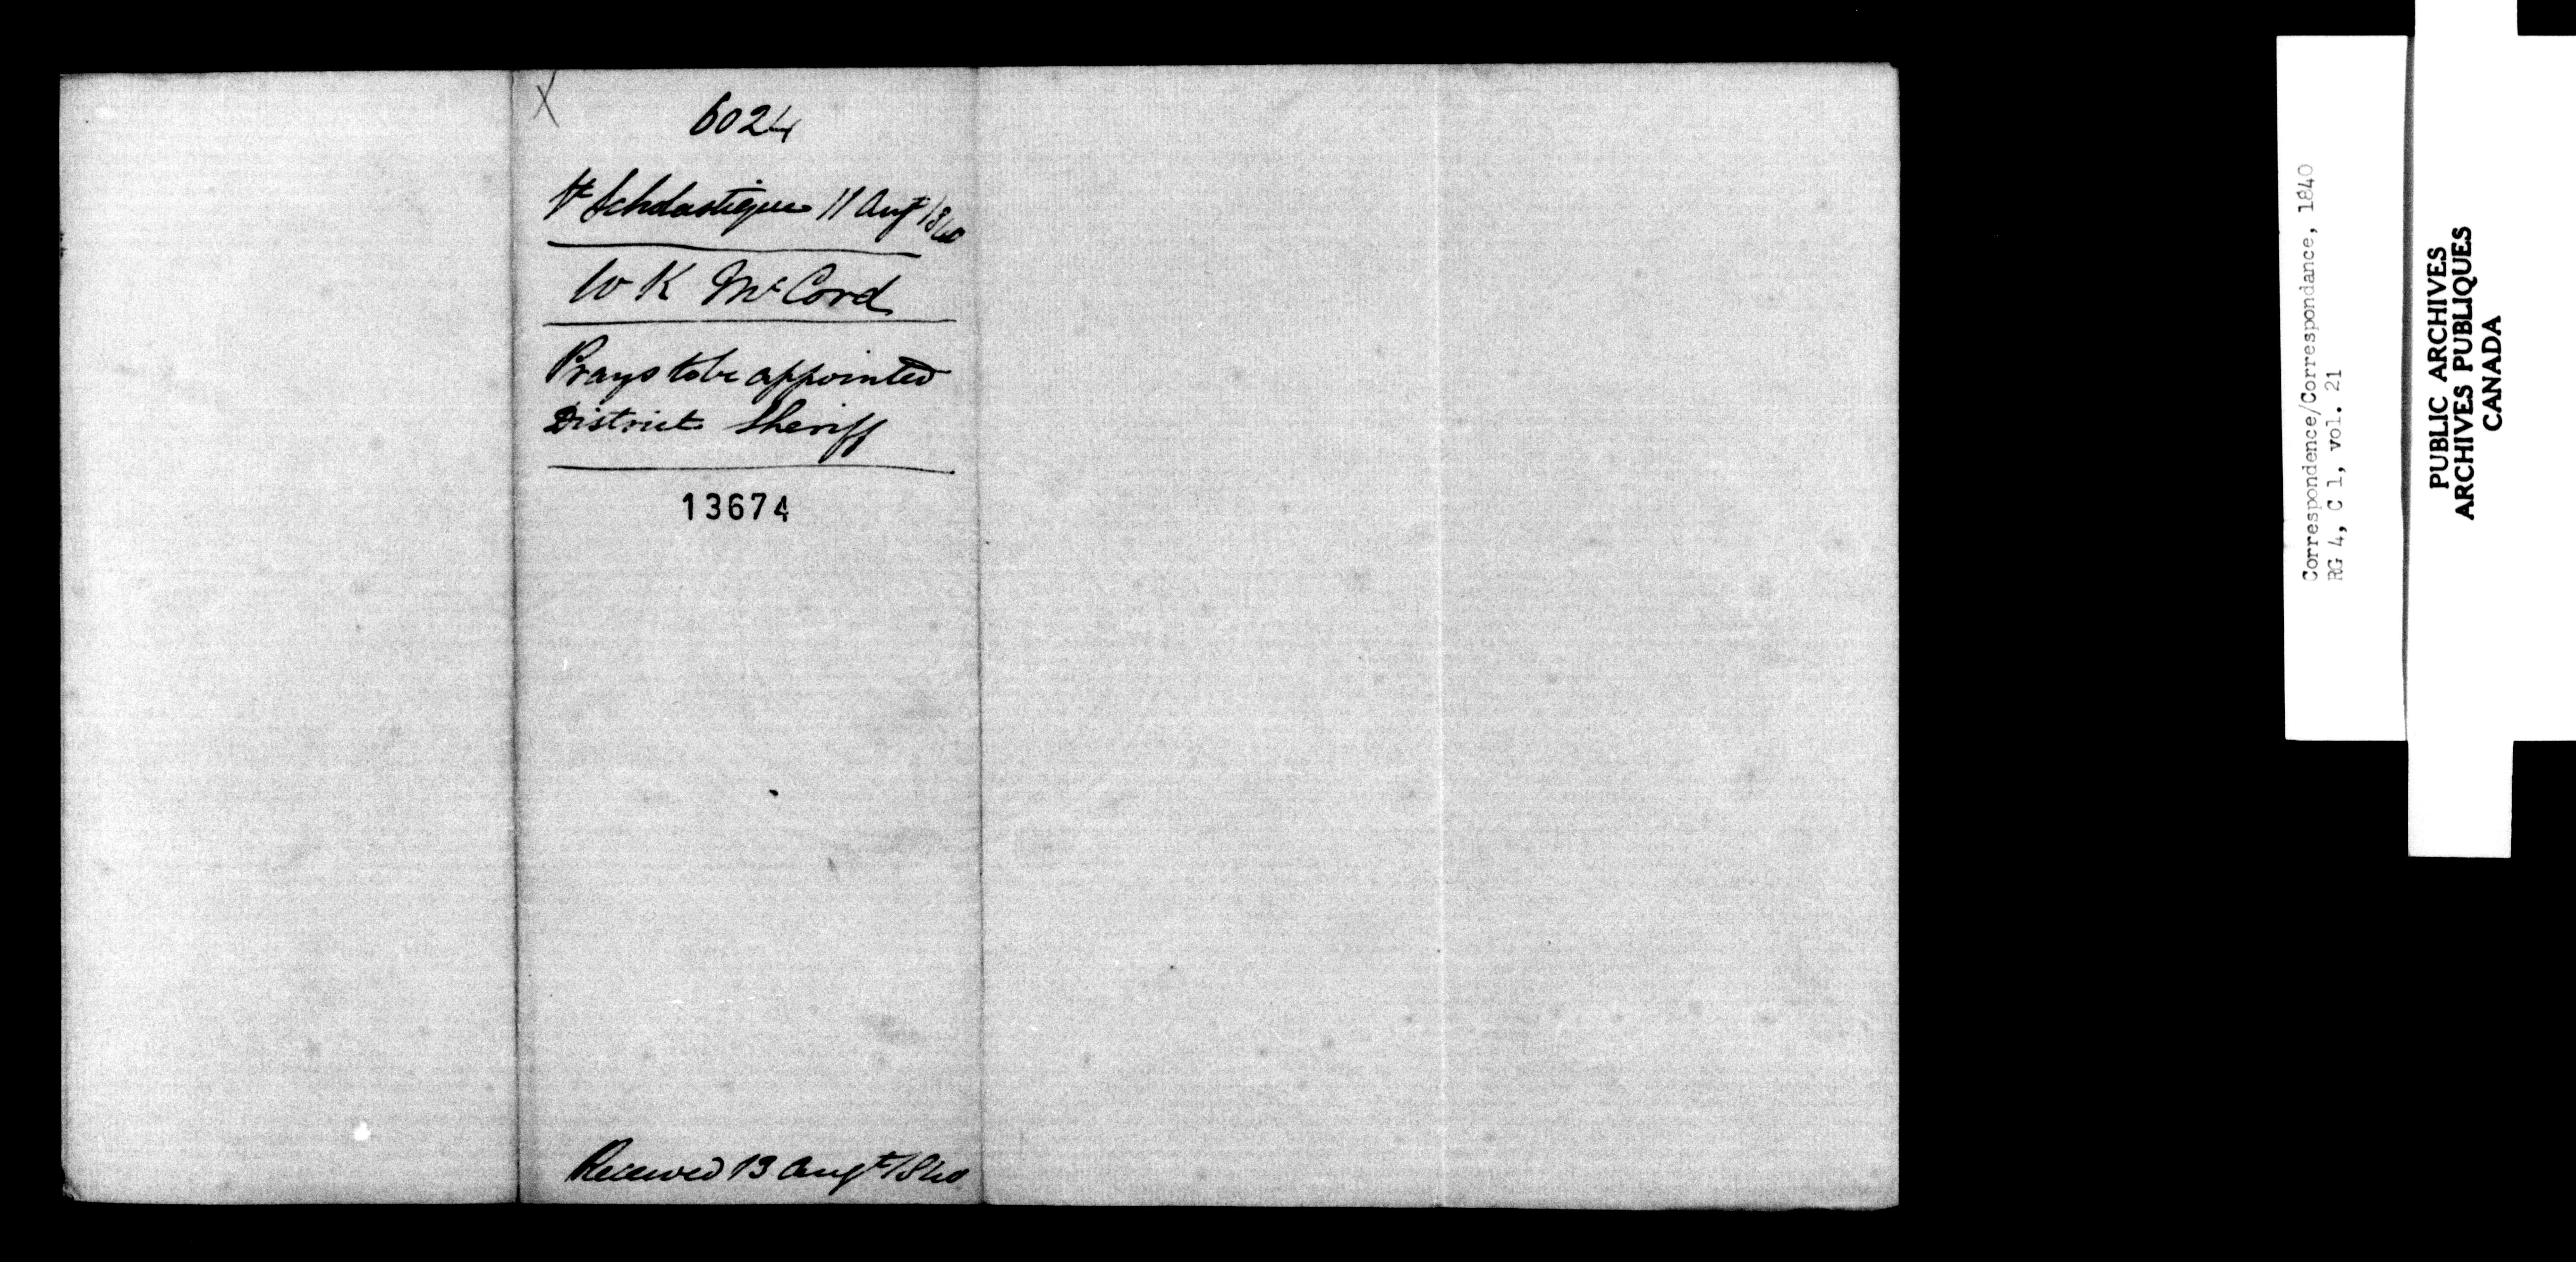 X
6024
St Scholastique 11 Augt 1840
W K McCord
Prays to be appointed
District Sheriff
13674
Received 13 Augt 1840
Correspondence/Correspondance, 1840
RG 4, C 1, vol. 21
PUBLIC ARCHIVES
ARCHIVES PUBLIQUES
CANADA